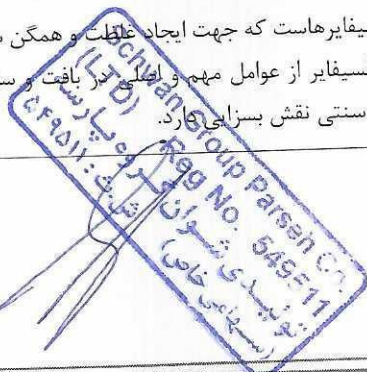 یفایرهاست که جهت ایجاد غلظت و همگن
سیفایر از عوامل مهم و اصلی در بافت و س
سنتی نقش بسزایی دارد.
Schwan Group Parseh Co.
(LTD) Reg No. 549511
تولیدی شوان گروه پارسه
(سهامی خاص) ش ث: ۵۴۹۵۱۱